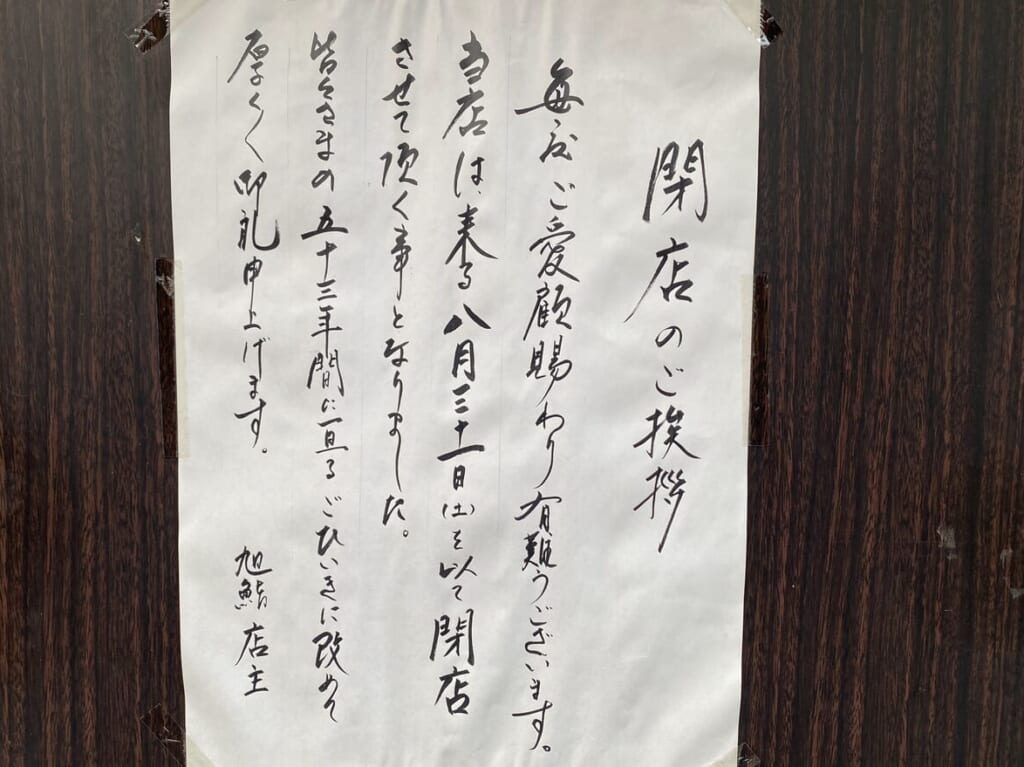 閉店のご挨拶
毎度ご愛顧賜わり有難うございます。
当店は、来る八月三十一日(土)を以て閉店
させて頂く事となりました。
皆々さまの五十三年間に亘るごひいきに改めて
厚く〱御礼申上げます。
旭鮨 店主